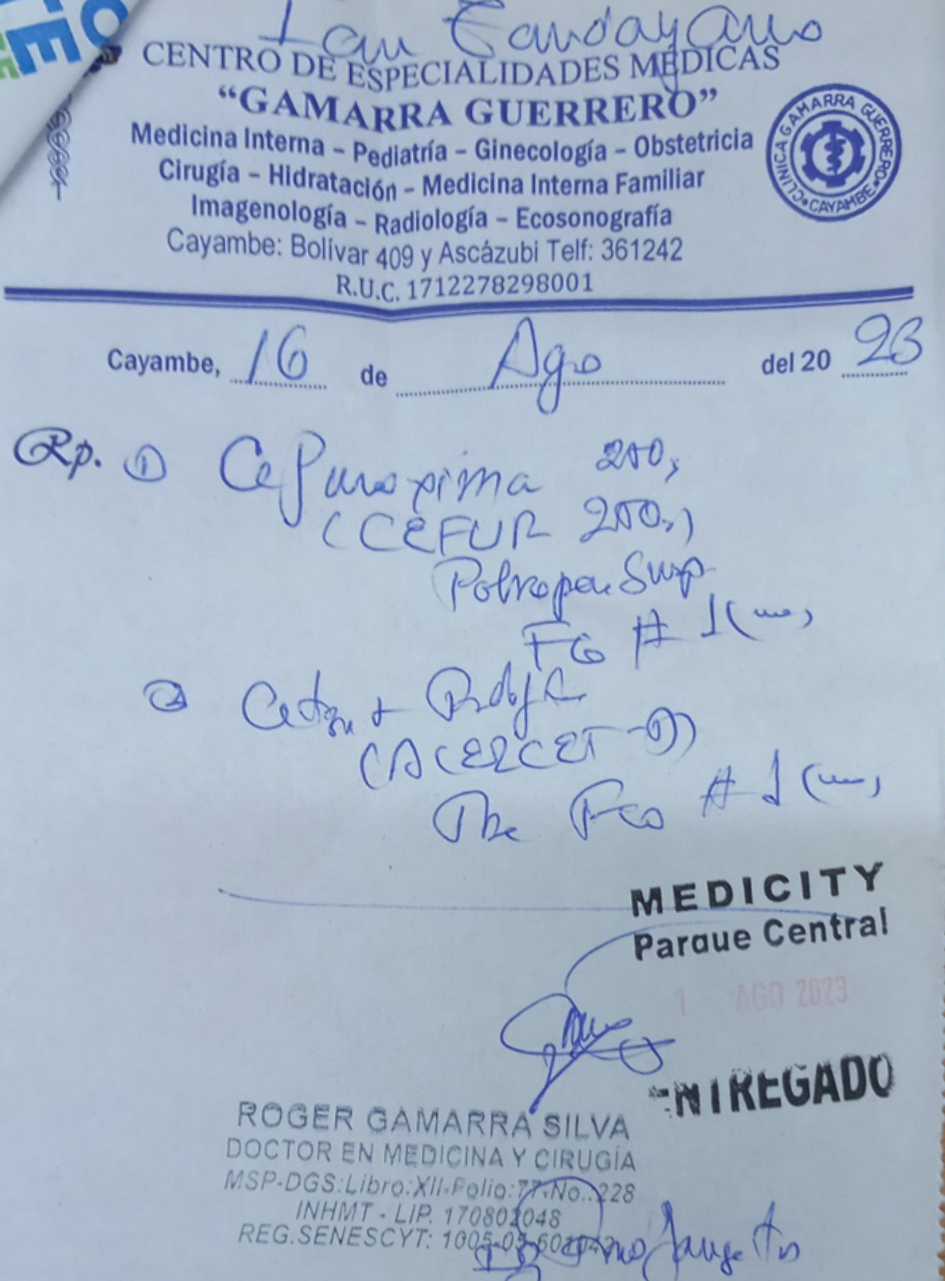 Ian Candayano
CENTRO DE ESPECIALIDADES MÉDICAS
“GAMARRA GUERRERO”
Medicina Interna – Pediatría – Ginecología – Obstetricia
Cirugía – Hidratación – Medicina Interna Familiar
Imagenología – Radiología – Ecosonografía
Cayambe: Bolívar 409 y Ascázubi Telf: 361242
R.U.C. 1712278298001
CLINICA GAMARRA GUERRERO
CAYAMBE
Cayambe, 16 de Ago del 20 23
Rp. ① Cefuroxima 250,
(CEFUR 250,)
Susp
FCO # 1 (
②
(ACERCET-D)
Fco # 1 (
MEDICITY
Parque Central
1 AGO 2023
ENTREGADO
ROGER GAMARRA SILVA
DOCTOR EN MEDICINA Y CIRUGÍA
MSP-DGS:Libro:XII-Folio:77-No..228
INHMT - LIP. 170802048
REG.SENESCYT: